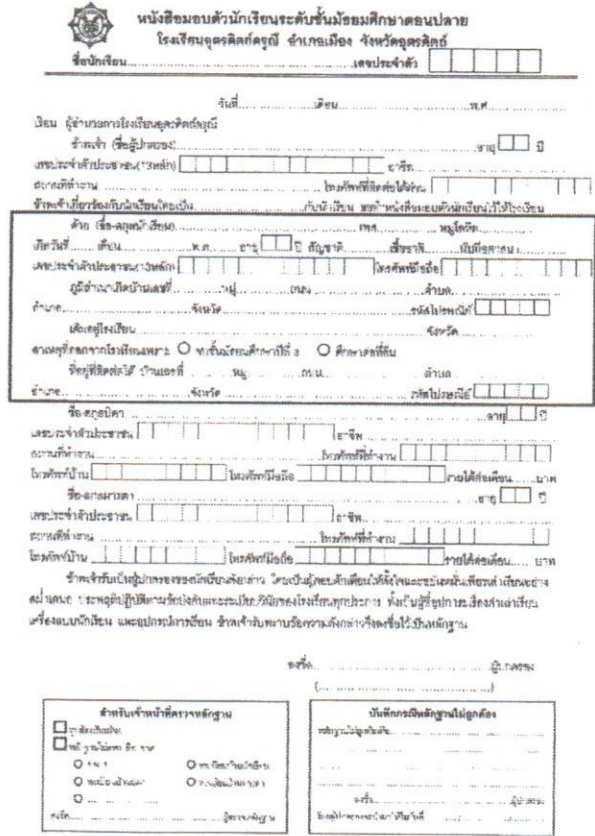 หนังสือมอบตัวนักเรียนระดับชั้นมัธยมศึกษาตอนปลาย
โรงเรียนอุตรดิตถ์ดรุณี อำเภอเมือง จังหวัดอุตรดิตถ์
ชื่อนักเรียน..............................เลขประจำตัว
วันที่..................เดือน..............................พ.ศ..................
เรียน ผู้อำนวยการโรงเรียนอุตรดิตถ์ดรุณี
ข้าพเจ้า (ชื่อผู้ปกครอง)..............................อายุ ปี
เลขประจำตัวประชาชน(13หลัก) อาชีพ..................
สถานที่ทำงาน..............................โทรศัพท์ที่ติดต่อได้
ข้าพเจ้าเกี่ยวข้องกับนักเรียนโดยเป็น..................กับนักเรียน ขอทำหนังสือมอบตัวนักเรียนไว้ให้โรงเรียน
ด้วย (ชื่อ-สกุลนักเรียน)..............................เพศ..........หมู่โลหิต..........
เกิดวันที่..........เดือน..........พ.ศ..........อายุ ปี สัญชาติ..........เชื้อชาติ..........นับถือศาสนา
เลขประจำตัวประชาชน(13หลัก) โทรศัพท์มือถือ
ภูมิลำเนาเกิดบ้านเลขที่..........หมู่..........ถนน..........ตำบล..........
อำเภอ..................จังหวัด..................รหัสไปรษณีย์
เดิมอยู่โรงเรียน..............................จังหวัด..................
สาเหตุที่ออกจากโรงเรียนเพราะ จบชั้นมัธยมศึกษาปีที่ 3 ศึกษาต่อที่อื่น
ที่อยู่ที่ติดต่อได้ บ้านเลขที่..........หมู่..........ถนน..........ตำบล..........
อำเภอ..................จังหวัด..................รหัสไปรษณีย์
ชื่อ-สกุลบิดา..............................อายุ ปี
เลขประจำตัวประชาชน อาชีพ..................
สถานที่ทำงาน..............................โทรศัพท์ที่ทำงาน
โทรศัพท์บ้าน โทรศัพท์มือถือ รายได้ต่อเดือน..........บาท
ชื่อ-สกุลมารดา..............................อายุ ปี
เลขประจำตัวประชาชน อาชีพ..................
สถานที่ทำงาน..............................โทรศัพท์ที่ทำงาน
โทรศัพท์บ้าน โทรศัพท์มือถือ รายได้ต่อเดือน..........บาท
ข้าพเจ้ารับเป็นผู้ปกครองของนักเรียนดังกล่าว โดยเป็นผู้คอยตักเตือนให้ตั้งใจและขยันหมั่นเพียรเล่าเรียนอย่าง
สม่ำเสมอ ประพฤติปฏิบัติตามข้อบังคับและระเบียบวินัยของโรงเรียนทุกประการ ทั้งเป็นผู้อุปการะเรื่องค่าเล่าเรียน
เครื่องแบบนักเรียน และอุปกรณ์การเรียน ข้าพเจ้ารับทราบข้อความดังกล่าวจึงลงชื่อไว้เป็นหลักฐาน
ลงชื่อ..............................ผู้ปกครอง
(..............................)
สำหรับเจ้าหน้าที่ตรวจหลักฐาน
ลงชื่อ..................ผู้ตรวจหลักฐาน
บันทึกกรณีหลักฐานไม่ถูกต้อง
หลักฐานไม่ถูกต้องคือ..................
ลงชื่อ..................ผู้ปกครอง